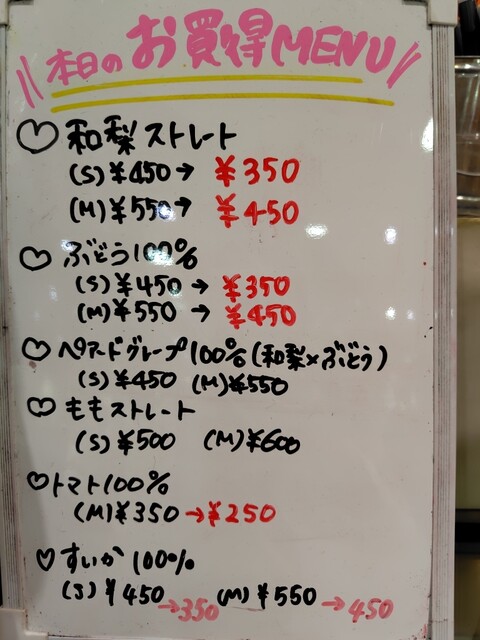 本日のお買得MENU
和梨ストレート
(S)¥450→ ¥350
(M)¥550→ ¥450
ぶどう100%
(S)¥450→ ¥350
(M)¥550→ ¥450
ペアードグレープ100%(和梨×ぶどう)
(S)¥450 (M)¥550
ももストレート
(S)¥500 (M)¥600
トマト100%
(M)¥350→¥250
すいか100%
(S)¥450→350 (M)¥550→450